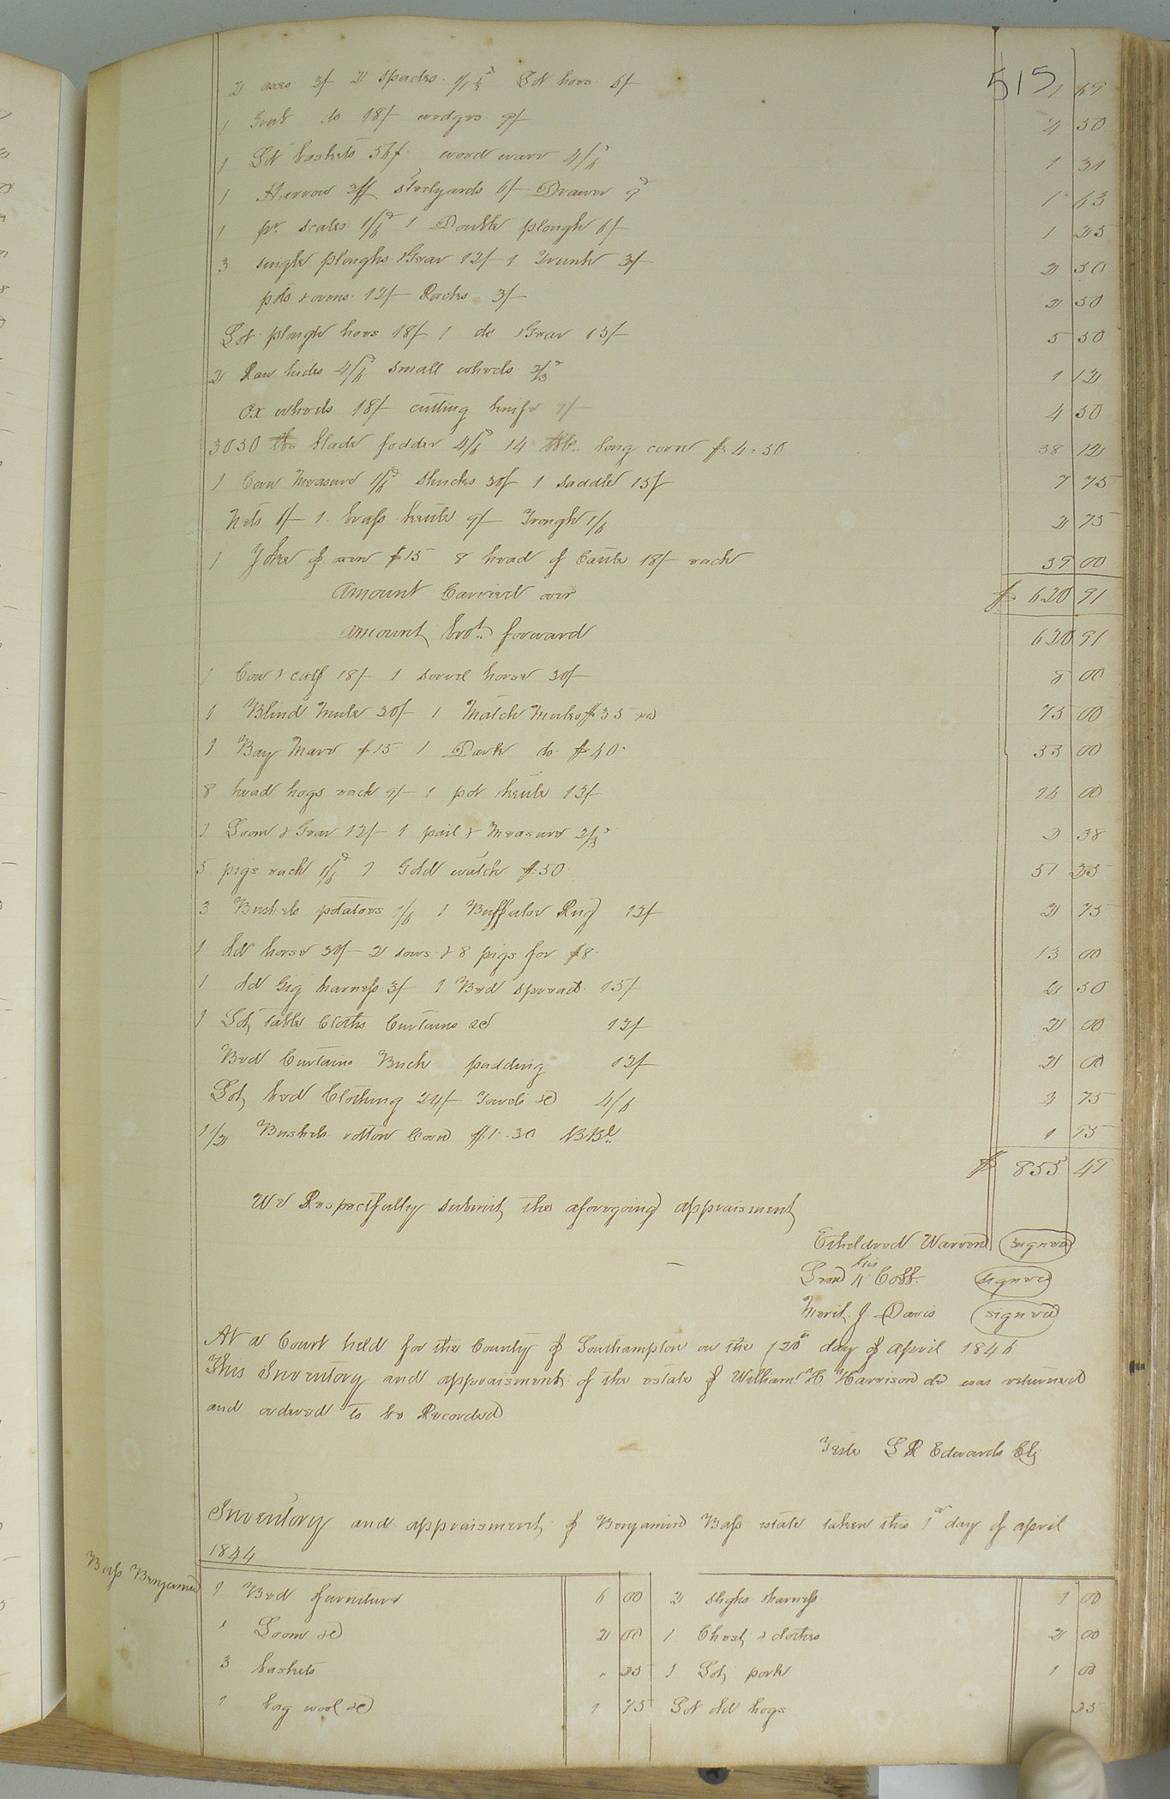 515
2 axes 3/ 2 spades 1/1½ Lot hoes 6/ 1 69
1 Grub do 18/ wedges 9/ 4 50
1 Lot baskets 5/6 wood ware 4/6 1 31
1 Harrow steelyards 6/ Drawer 1 63
1 pr. scales 1/6 1 Double plough 6/ 1 25
3 single ploughs & Gear 12/ 1 Trunk 3/ 2 50
pots & ovens 12/ Racks 3/ 2 50
Lot plough hoes 18/ 1 do & Gear 15/ 5 50
2 Raw hides 4/6 small wheels 2/3 1 12
Ox wheels 18/ cutting knife 9/ 4 50
3050 lbs blade fodder 4/6 14 bbls. long corn $ 4.50 38 12
1 Corn Measure 1/6 shucks 30/ 1 saddle 15/ 7 75
Nets 6/ 1 brass kettle 9/ Trough 1/6 2 75
1 Yoke of oxen $15 8 head of Cattle 18/ each 39 00
Amount Carried over $ 620 91
Amount brot. forward 620 91
1 Cow & calf 18/ 1 sorrel horse 30/ 8 00
1 Blind Mule 30/ 1 Match Mules $35 ea 75 00
1 Bay Mare $15 1 Dark do $40 55 00
8 head hogs each 9/ 1 pot kettle 12/ 14 00
1 Loom & Gear 12/ 1 pail & Measure 2/3 2 38
5 pigs each 1/6 1 Gold watch $50 51 25
3 Bushels potatoes 1/6 1 Buffaloe Rug 12/ 2 75
1 old horse 30/ 2 sows & 8 pigs for $8 13 00
1 old Gig harness 3/ 1 Bed spread 15/ 2 50
1 Lot table Cloths Curtains &c 12/ 2 00
Bed Curtains Buck padding 12/ 2 00
Lot bed Clothing 24/ Towels &c 4/6 4 75
1 1/2 Bushels rotton Corn $1.30 BBl 1 95
$ 855 47
We Respectfully submit the aforegoing appraisment
Etheldred Warren signed
his Cobb signed
Merit J Davis signed
At a Court held for the County of Southampton on the 20th day of April 1846
This Inventory and appraisment of the estate of William H Harrison dc was returned
and ordered to be Recorded
Teste L R Edwards Clk
Inventory and appraisment of Benjamin Bass estate taken this 1st day of April
1844
Bass Benjamin
1 Bed furniture 6 00 2 sleghs harness 1 00
1 Loom &c 2 00 1 Chest & clothes 2 00
3 baskets 25 1 Lot pork 1 00
1 bag wool &c 1 75 Lot old hogs 25